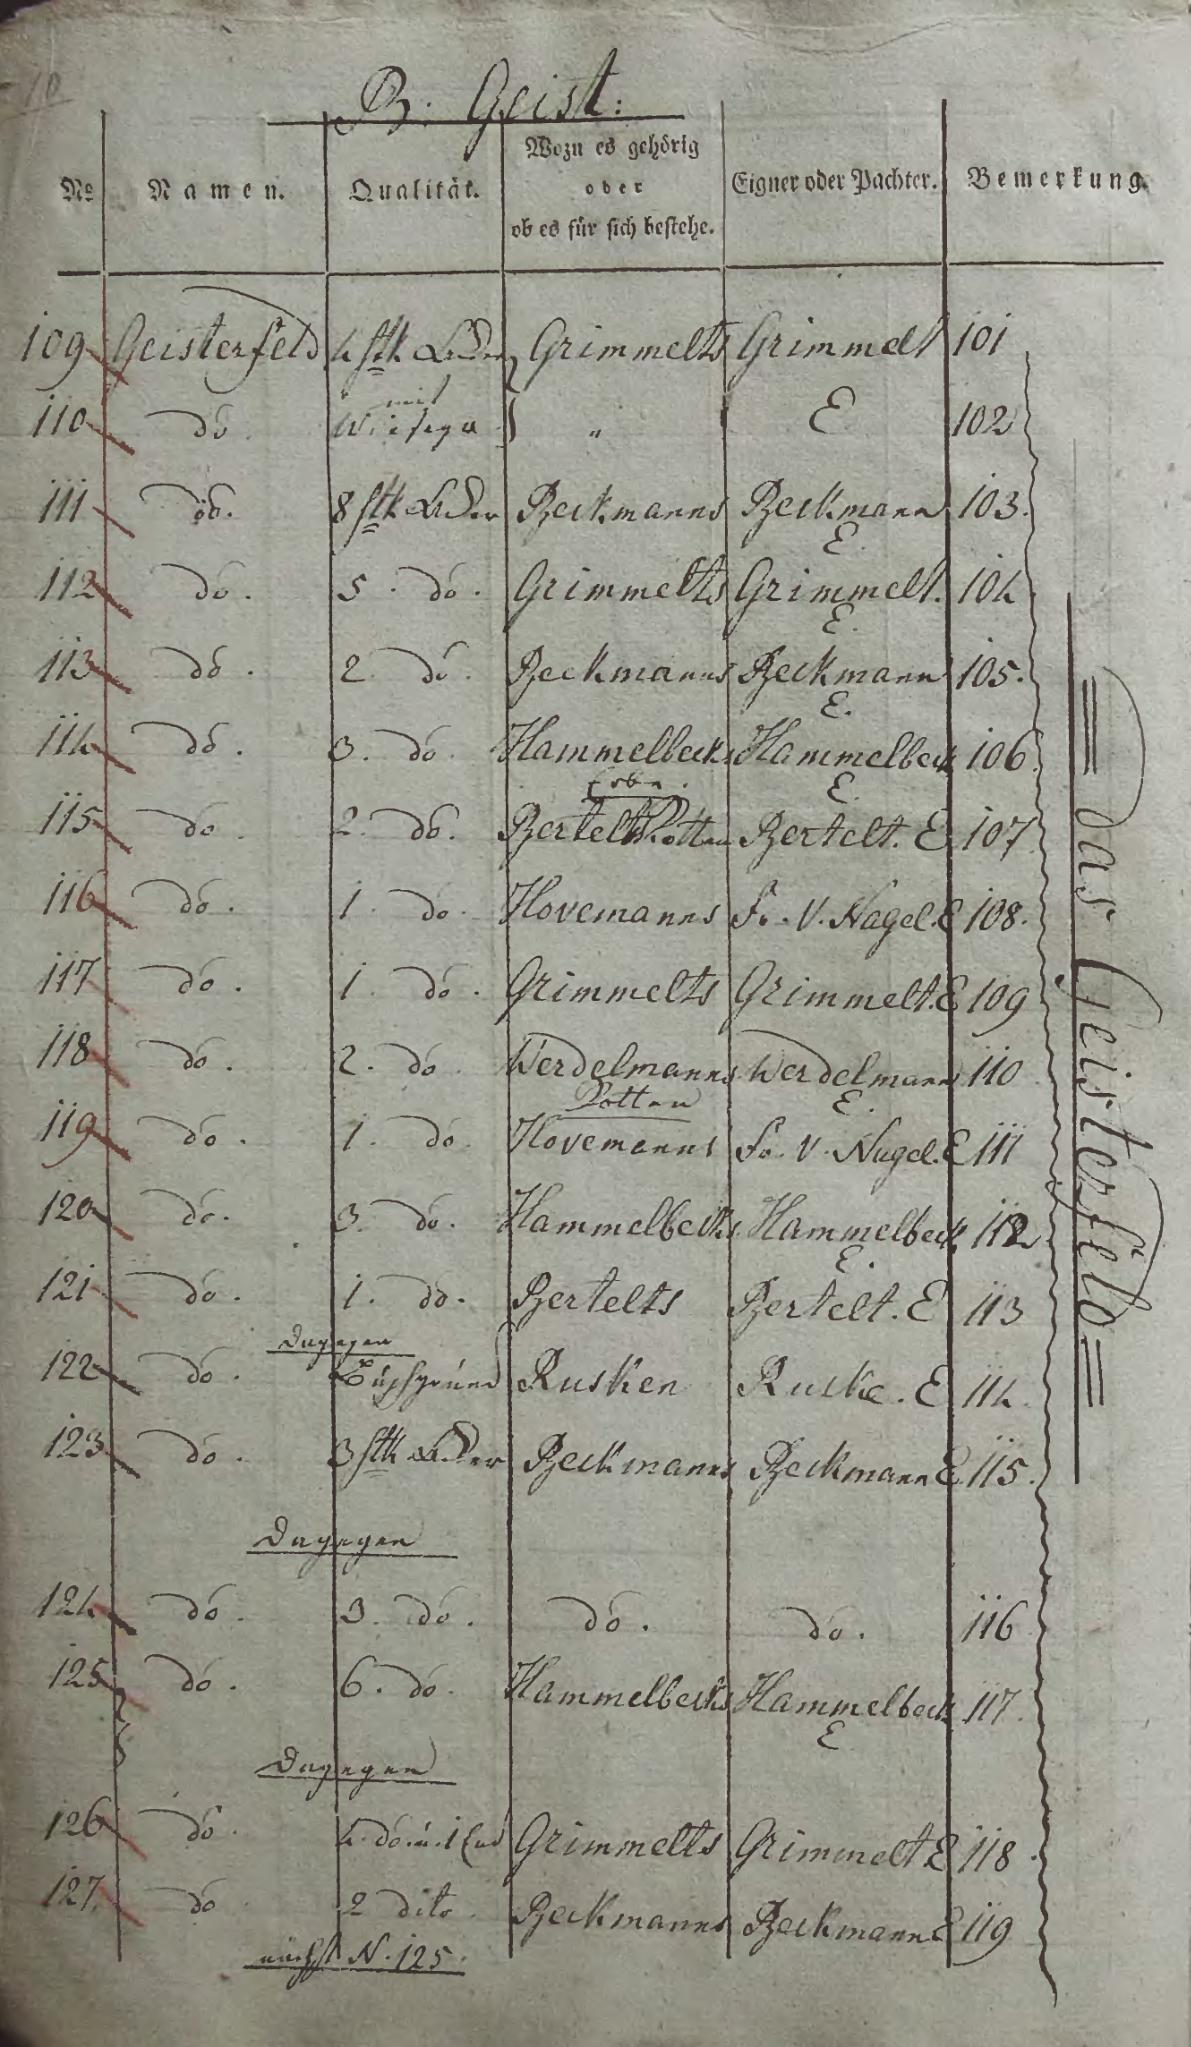 10
B. Geist:
No Namen. Qualität. Wozu es gehörig oder ob es für sich bestehe. Eigner oder Pachter. Bemerkung.
109 Geisterfeld 4 stk Leder Grimmelts Grimmelt 101
mit
110 do Wiesega " E 102
111 do. 8 stk Leder Beckmanns Beckmann 103.
E.
112 do. 5. do. Grimmelts Grimmelt. 104
E.
113 do. 2. do. Beckmanns Beckmann 105.
E.
114 do. 3. do. Hammelbecks Hammelbeck 106.
Erbe. E.
115 do. 2. do. Bertelts Kotten Bertelt. E 107
116 do. 1. do. Hovemanns Fr. V. Nagel. E 108.
117 do. 1. do. Grimmelts Grimmelt. E 109
118 do. 2. do Werdelmanns Werdelmann 110
Kotten E.
119 do. 1. do. Hovemanns Fr. V. Nagel. E 111
120 do. 3. do. Hammelbecks Hammelbeck 112
E.
121 do. 1. do. Bertelts Bertelt. E 113
Dagegen
122 do. Buschgrund Rusken Ruske. E 114.
123 do. 3 stk Leder Beckmanns Beckmann E. 115.
Dagegen
124 do. 3. do. do. do. 116
125 do. 6. do. Hammelbecks Hammelbeck 117.
E
Dagegen
126 do. 4. do. u. 1 Grimmelts Grimmelt E 118.
127. do 2 dito. Beckmanns Beckmann E 119
nächst N. 125.
= das Geisterfeld =